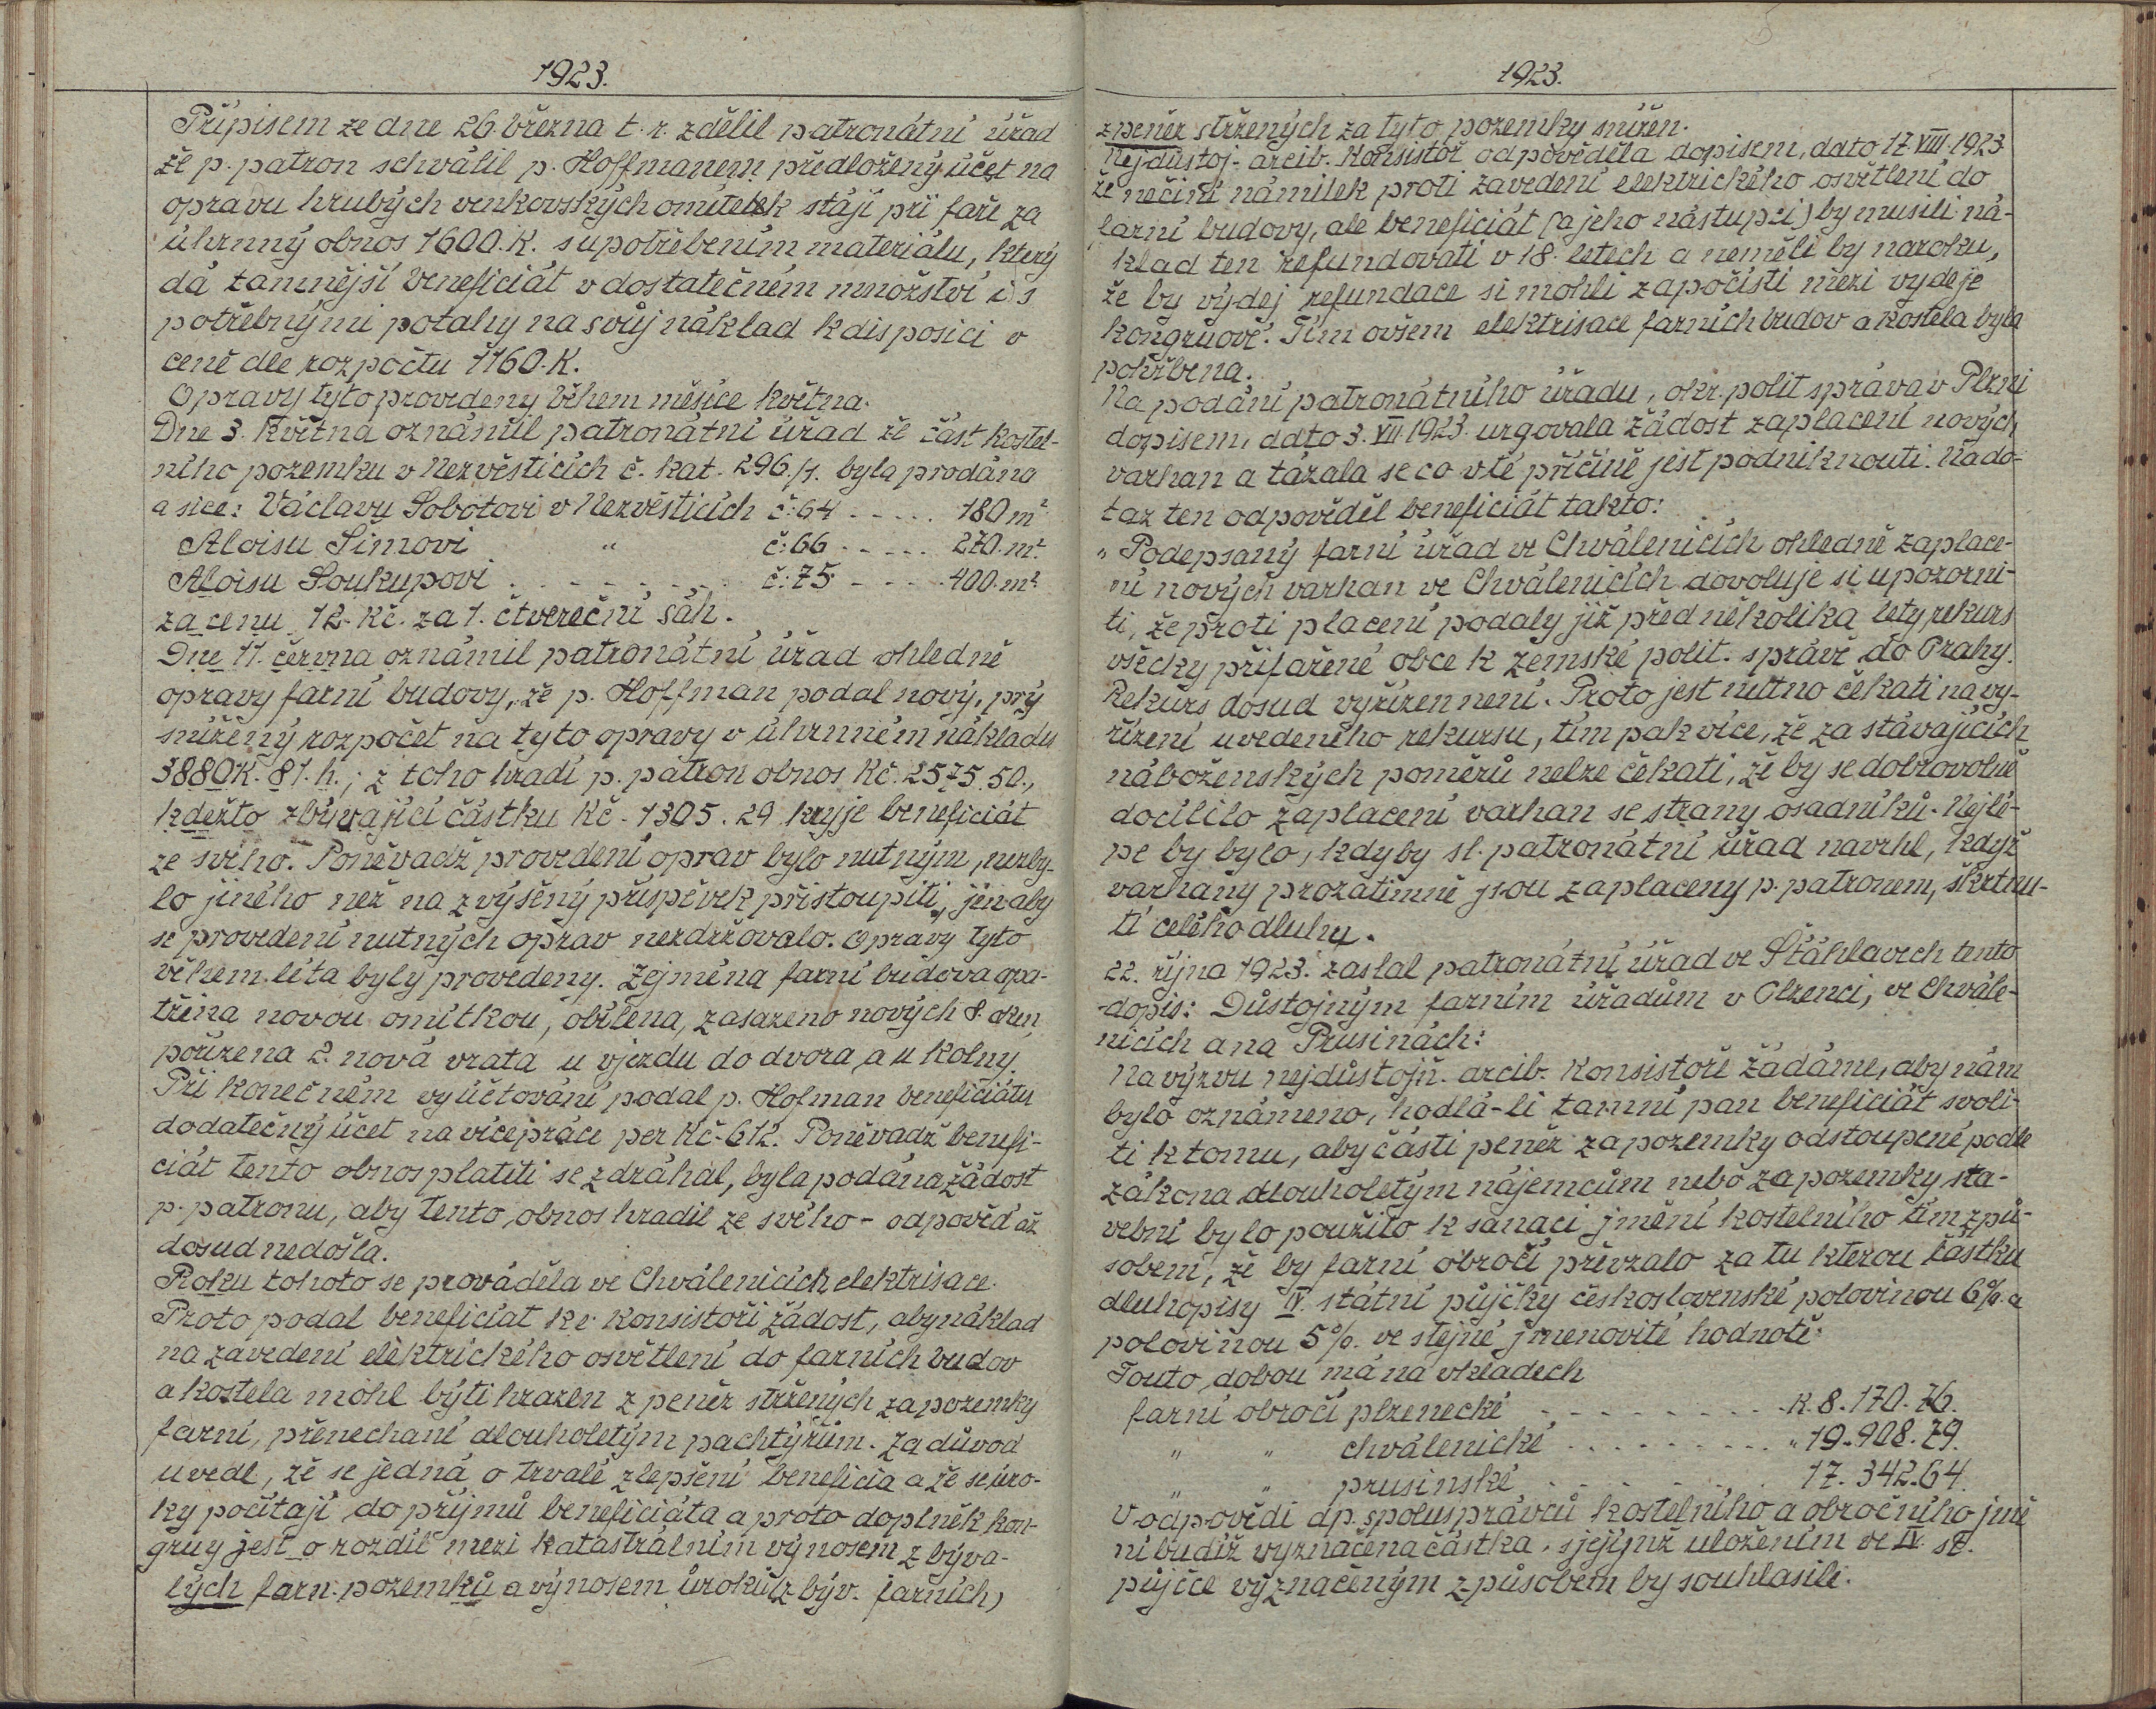 1923.
Přípisem ze dne 26. března t. r. zdělil patronátní úřad
že p. patron schválil p. Hoffmanem předložený účet na
opravu hrubých venkovských omítek stájí při faře za
úhrnný obnos 1600. K. s upotřebením materiálu, který
dá tamnější beneficiát v dostatečném množství i s
potřebnými potahy na svůj náklad k disposici v
ceně dle rozpočtu 1160. K.
Opravy tyto provedeny během měsíce května.
Dne 3. května oznámil patronátní úřad že část kostel-
ního pozemku v Nezvěsticích č. kat. 296./1. byla prodána
a sice: Václavu Sobotovi v Nezvěsticích č: 64 ..... 180 m²
Aloisu Šimovi " č: 66 ..... 270. m²
Aloisu Soukupovi ........ č: 75 ..... 400. m²
za cenu 12. Kč. za 1. čtvereční sáh.
Dne 11. června oznámil patronátní úřad ohledně
opravy farní budovy, že p. Hoffman podal nový, prý
snížený rozpočet na tyto opravy v úhrnném nákladu
3880K. 81. h.; z toho hradí p. patron obnos Kč. 2575.50.,
kdežto zbývající částku Kč - 1305. 29 kryje beneficiát
ze svého. Poněvadž provedení oprav bylo nutným, nezby-
lo jiného než na zvýšený příspěvek přistoupiti, jen aby
se provedení nutných oprav nezdržovalo. Opravy tyto
během léta byly provedeny. Zejména farní budova opa-
třena novou omítkou, obílena, zasazeno nových 8. oken
pořízena 2. nová vrata u vjezdu do dvora a u kolny.
Při konečném vyúčtování podal p. Hofman beneficiátu
dodatečný účet na vícepráce per Kč - 612. Poněvadž benefi-
ciát tento obnos platiti se zdráhal, byla podána žádost
p. patronu, aby tento obnos hradil ze svého - odpověď až
dosud nedošla.
Roku tohoto se prováděla ve Chválenicích elektrisace.
Proto podal beneficiat ke konsistoři žádost, aby náklad
na zavedení elektrického osvětlení do farních budov
a kostela mohl býti hrazen z peněz stržených za pozemky
farní, přenechané dlouholetým pachtýřům. Za důvod
uvedl, že se jedná o trvalé zlepšení beneficia a že se úro-
ky počítají do příjmů beneficiáta a proto doplněk kon-
gruy jest o rozdíl mezi katastrálním výnosem z býva-
lých farn. pozemků a výnosem úroků (z býv. farních)
1923.
z peněz stržených za tyto pozemky snížen.
Nejdůstoj. arcib. Konsistoř odpověděla dopisem, dato 17. VIII. 1923
že nečiní námitek proti zavedení elektrického osvětlení do
farní budovy, ale beneficiát (a jeho nástupci) by musili ná-
klad ten refundovati v 18. letech a neměli by naroku,
že by výdej refundace si mohli započísti mezi vydeje
kongruové. Tím ovšem elektrisace farních budov a kostela byla
pohřbena.
Na podání patronátního úřadu, okr. polit správa v Plzni
dopisem, ddto 3. VII. 1923. urgovala žádost zaplacení nových
varhan a tázala se co v té příčině jest podniknouti. Na do-
taz ten odpověděl beneficiát takto:
„Podepsaný farní úřad ve Chválenicích ohledně zaplace-
ní nových varhan ve Chválenicích dovoluje si upozorni-
ti, že proti placení podaly již před několika lety rekurs
všecky přifařené obce k zemské polit. správě do Prahy.
Rekurs dosud vyřízen není. Proto jest nutno čekati na vy-
řízení uvedeného rekursu, tím pak více, že za stávajících
náboženských poměrů nelze čekati, že by se dobrovolně
docílilo zaplacení varhan se strany osadníků. Nejlé-
pe by bylo, kdyby sl. patronátní úřad navrhl, když
varhany prozatímně jsou zaplaceny p. patronem, škrtnu-
tí celého dluhu.
22. října 1923. zaslal patronátní úřad ve Štáhlavech tento
-dopis: Důstojným farním úřadům v Plzenci, ve Chvále-
nicích a na Prusinách:
Na výzvu nejdůstojň. arcib. Konsistoře žádáme, aby nám
bylo oznámeno, hodlá-li tamní pan beneficiát svoli-
ti k tomu, aby části peněz za pozemky odstoupené podle
zákona dlouholetým nájemcům nebo za pozemky sta-
vební bylo použito k sanaci jmění kostelního tím způ-
sobem, že by farní obročí převzalo za tu kterou částku
dluhopisy IV. státní půjčky československé polovinou 6% a
polovinou 5%. ve stejné jmenovité hodnotě.
Touto dobou má na vkladech
farní obročí plzenecké ......... K. 8.170.76.
" " chválenické ......... " 19.908.79.
" " prusinské ......... 17.342.64.
V odpovědi dp. spolusprávců kostelního a obročního jmě
ní budiž vyznačena částka, s jejímž uložením ve IV. st.
půjčce vyznačeným způsobem by souhlasili.